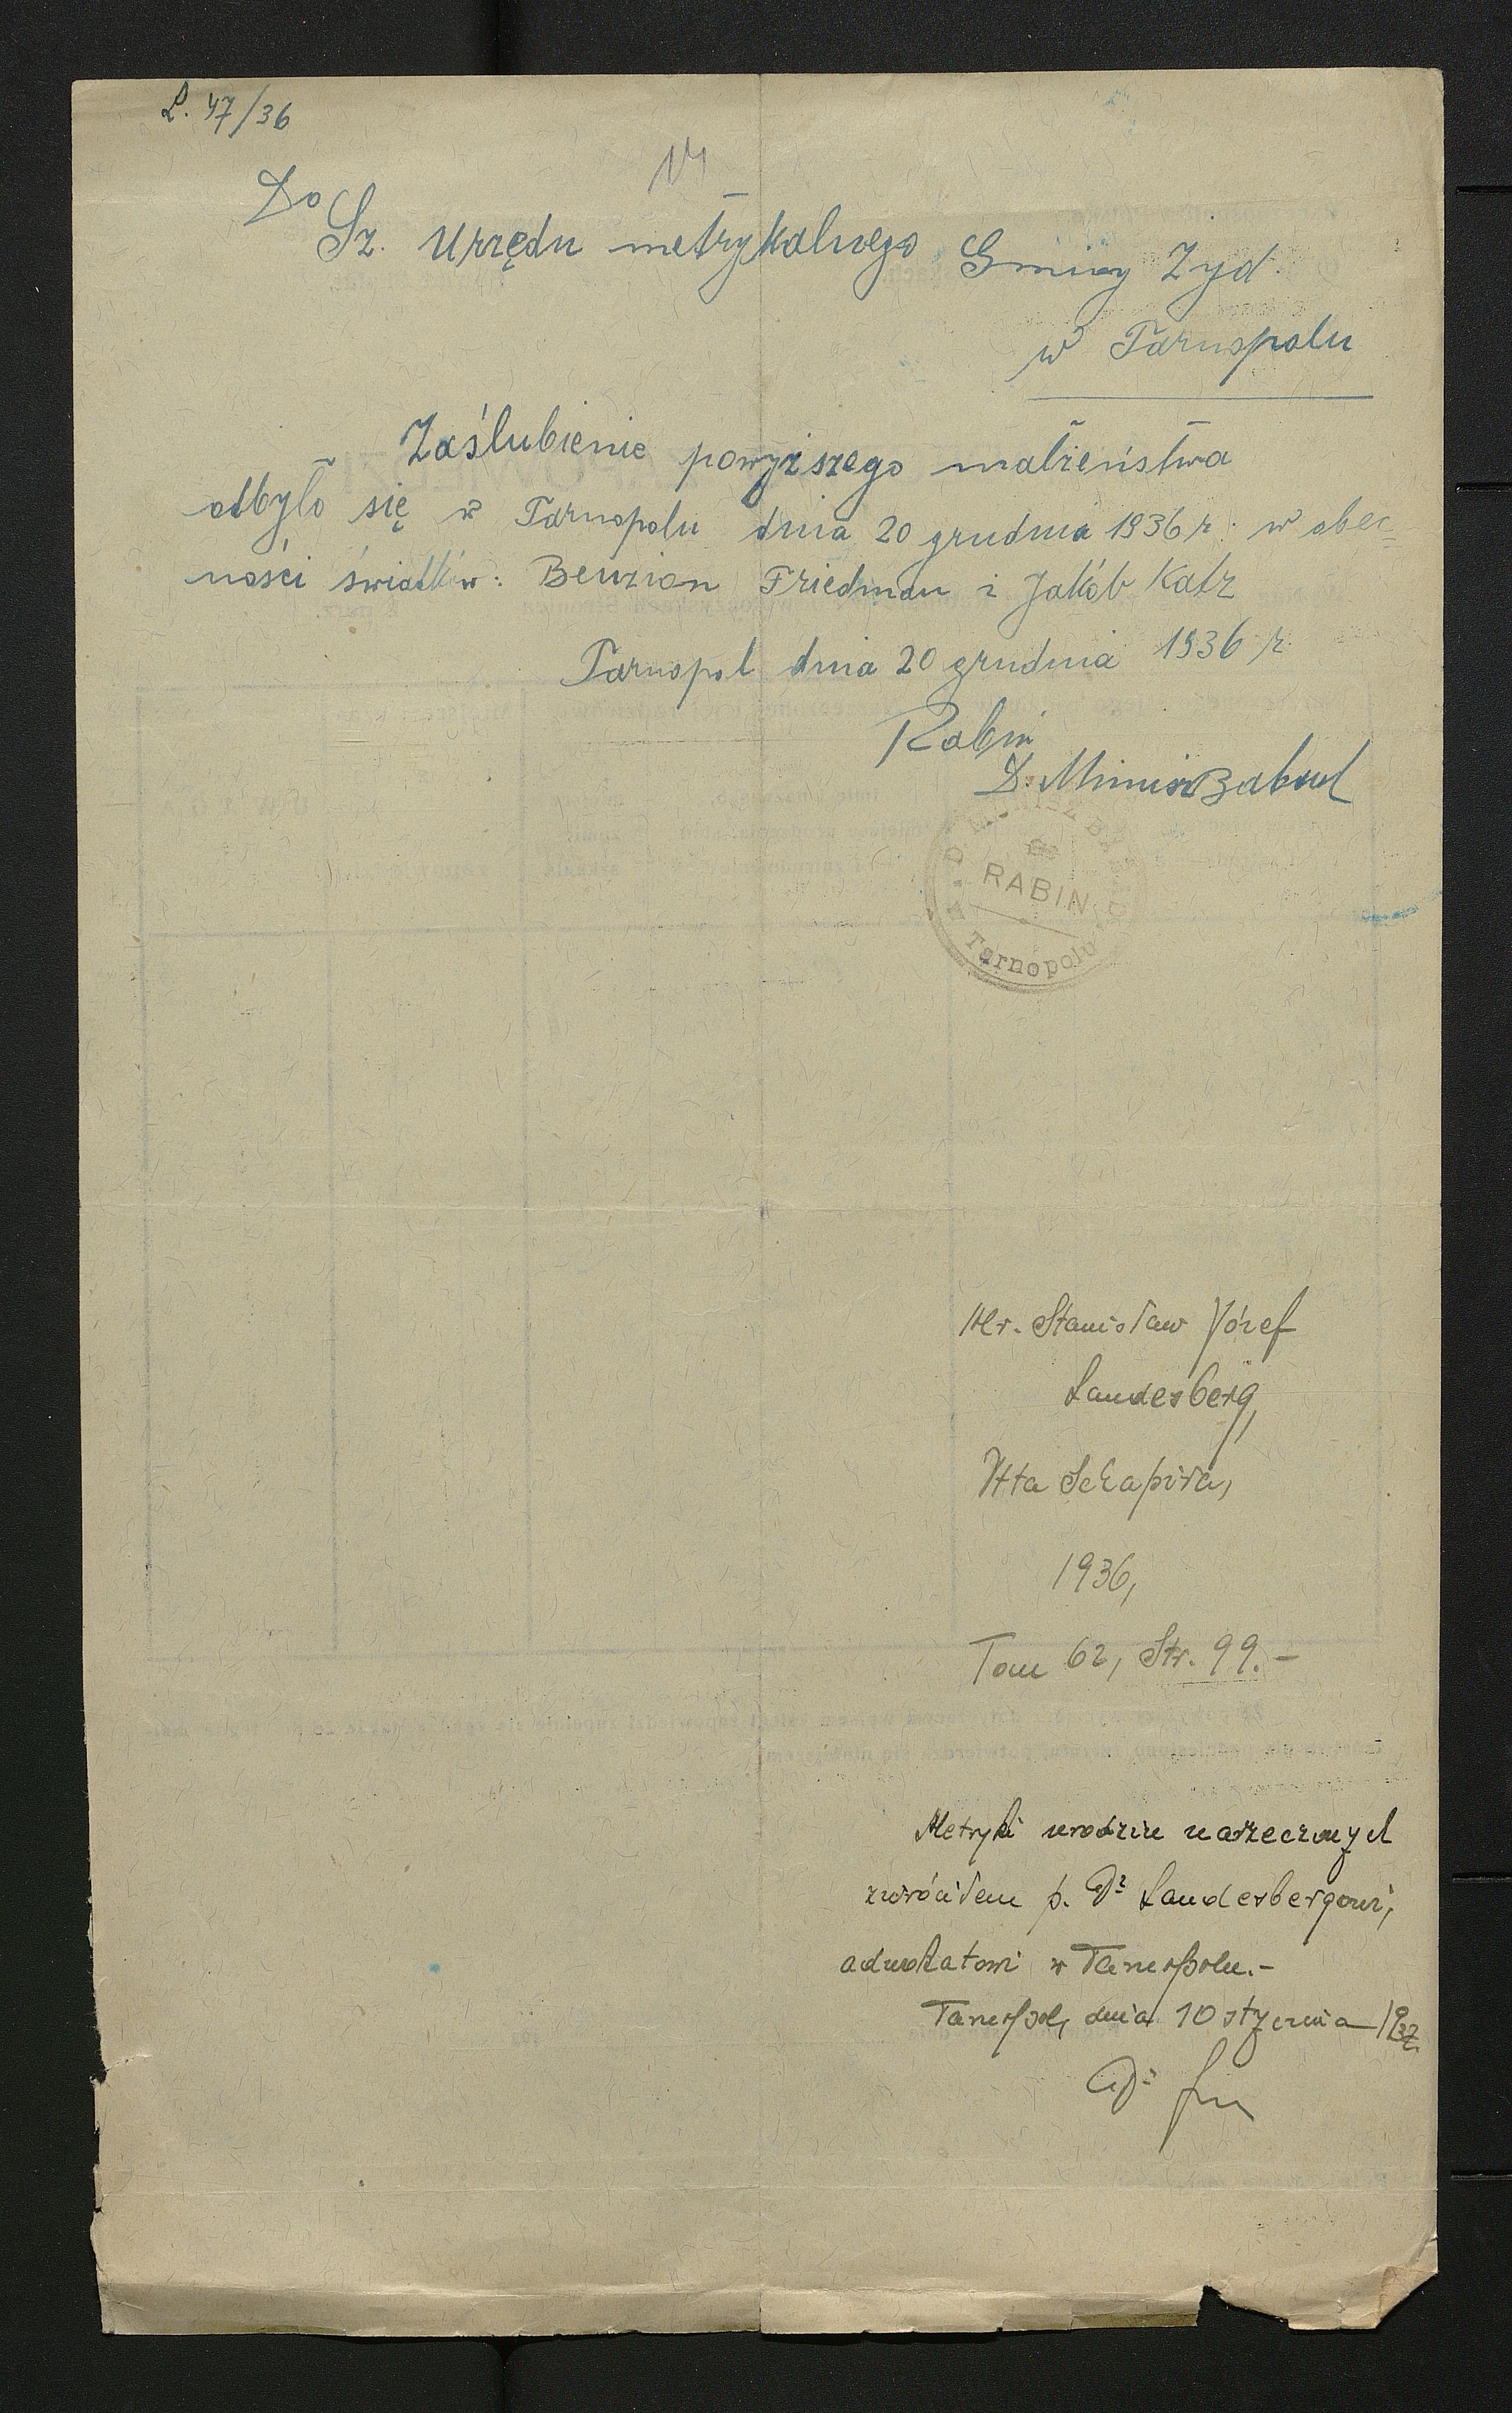 L. 47/36
14
Do
Sz. Urzędu metrykalnego Gminy Żyd.
w Tarnopolu
Zaślubienie powyższego małżeństwa
odbyło się w Tarnopolu dnia 20 grudnia 1936 r. w obec=
ności świadków: Benzion Friedman i Jakób Katz
Tarnopol dnia 20 grudnia 1936 r.
Rabin
D.
RABIN
Tarnopolu
Mr. Stanisław Józef
Landesberg,
Itta Schapira,
1936,
Tom 62, Str. 99.-
Metryki urodzin narzeczonych
zwróciłem p. Dr Landesbergowi,
adwokatowi w Tarnopolu.-
Tarnopol, dnia 10 stycznia 1937.
Dr